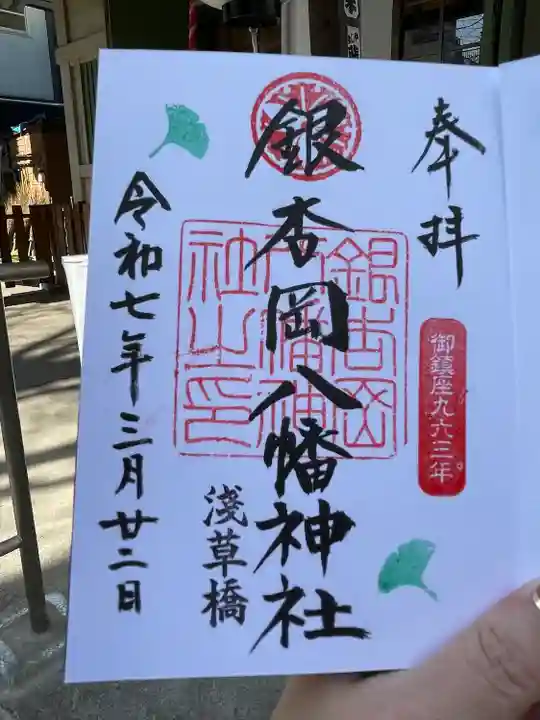 奉拝
御鎮座九六三年
銀杏岡八幡神社
銀杏岡
八幡神
社之印
淺草橋
令和七年三月廿二日